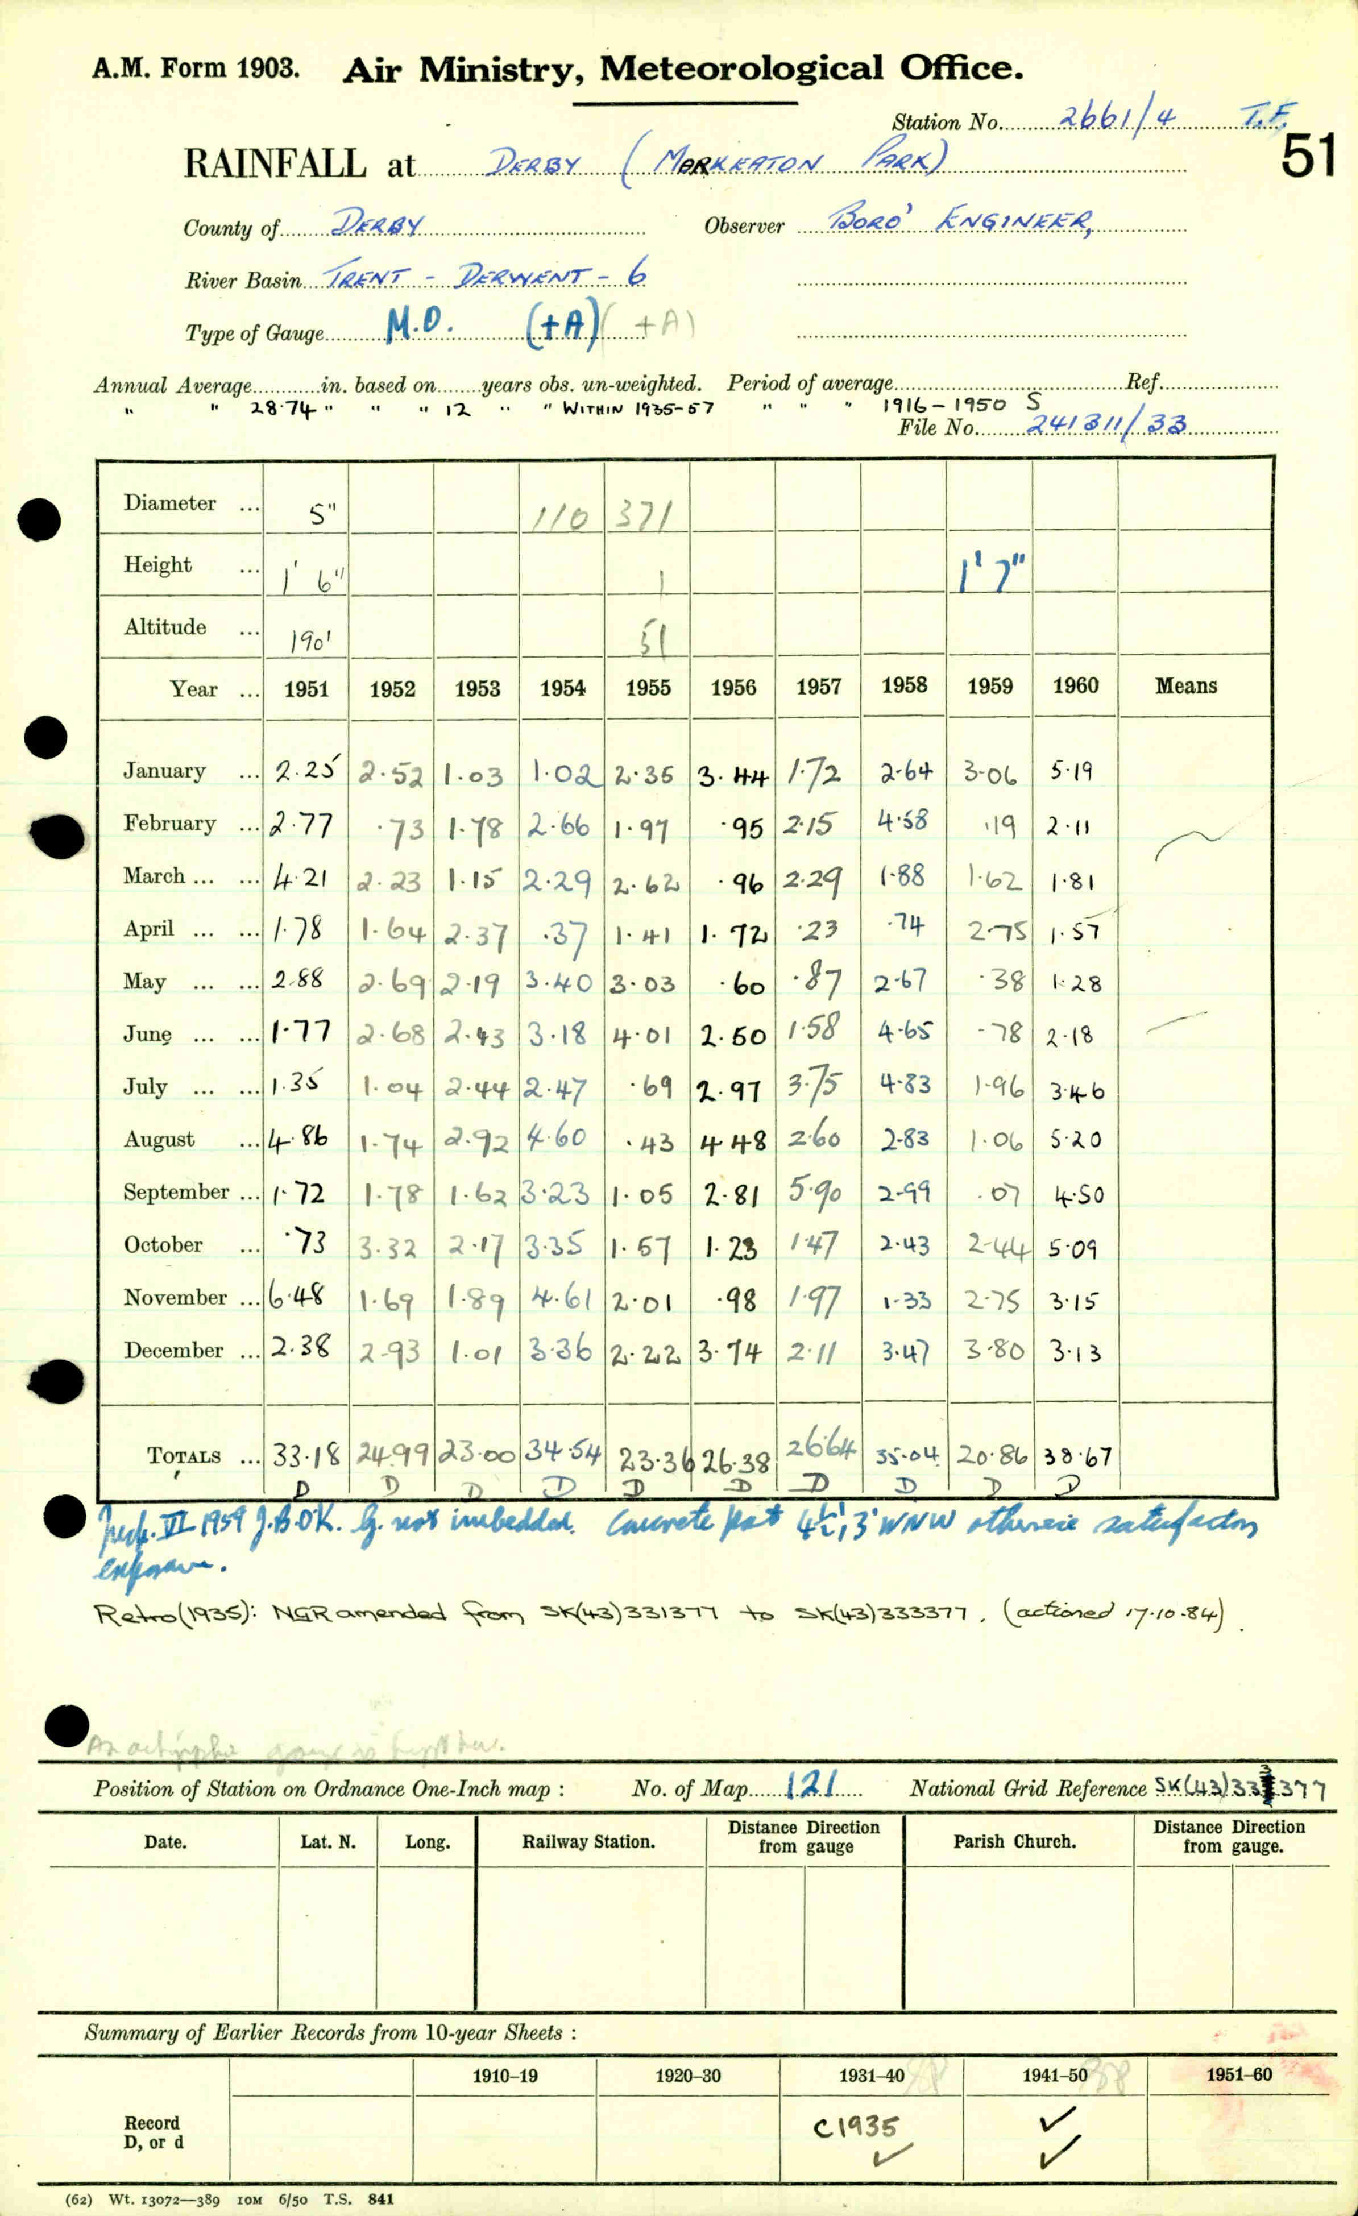 A.M. Form 1903. Air Ministry, Meteorological Office.
Station No. 2661/4 T.F.
51
RAINFALL at DERBY (MARKEATON PARK)
County of DERBY Observer BORO' ENGINEER,
River Basin TRENT - DERWENT - 6
Type of Gauge M.O. (+A) (+A)
Annual Average in. based on years obs. un-weighted. Period of average Ref.
" " 28.74 " " " 12 " " WITHIN 1935-57 " " " 1916-1950 S
File No. 241311/33
Diameter ... 5" 110 371
Height ... 1' 6" 1 1' 7"
Altitude ... 190' 51
Year ... 1951 1952 1953 1954 1955 1956 1957 1958 1959 1960 Means
January ... 2.25 2.52 1.03 1.02 2.35 3.44 1.72 2.64 3.06 5.19
February ... 2.77 .73 1.78 2.66 1.97 .95 2.15 4.58 .19 2.11
March ... ... 4.21 2.23 1.15 2.29 2.62 .96 2.29 1.88 1.62 1.81
April ... ... 1.78 1.64 2.37 .37 1.41 1.72 .23 .74 2.75 1.57
May ... ... 2.88 2.69 2.19 3.40 3.03 .60 .87 2.67 .38 1.28
June ... ... 1.77 2.68 2.43 3.18 4.01 2.50 1.58 4.65 .78 2.18
July ... ... 1.35 1.04 2.44 2.47 .69 2.97 3.75 4.83 1.96 3.46
August ... 4.86 1.74 2.92 4.60 .43 4.48 2.60 2.83 1.06 5.20
September ... 1.72 1.78 1.62 3.23 1.05 2.81 5.90 2.99 .07 4.50
October ... .73 3.32 2.17 3.35 1.57 1.23 1.47 2.43 2.44 5.09
November ... 6.48 1.69 1.89 4.61 2.01 .98 1.97 1.33 2.75 3.15
December ... 2.38 2.93 1.01 3.36 2.22 3.74 2.11 3.47 3.80 3.13
TOTALS ... 33.18 24.99 23.00 34.54 23.36 26.38 26.64 35.04 20.86 38.67
D D D D D D D D D D
Insp. VI 1959 J.B. OK. G. not imbedded. Concrete post 4½', 3' WNW otherwise satisfactory
exposure.
Retro(1935): NGR amended from SK(43)331377 to SK(43)333377. (actioned 17.10.84).
Position of Station on Ordnance One-Inch map : No. of Map 121 National Grid Reference SK(43)333377
Date. Lat. N. Long. Railway Station. Distance Direction from gauge Parish Church. Distance Direction from gauge.
Summary of Earlier Records from 10-year Sheets :
1910–19 1920–30 1931–40 1941–50 1951–60
Record
D, or d
C1935 ✓ ✓
✓
(62) Wt. 13072—389 10M 6/50 T.S. 841